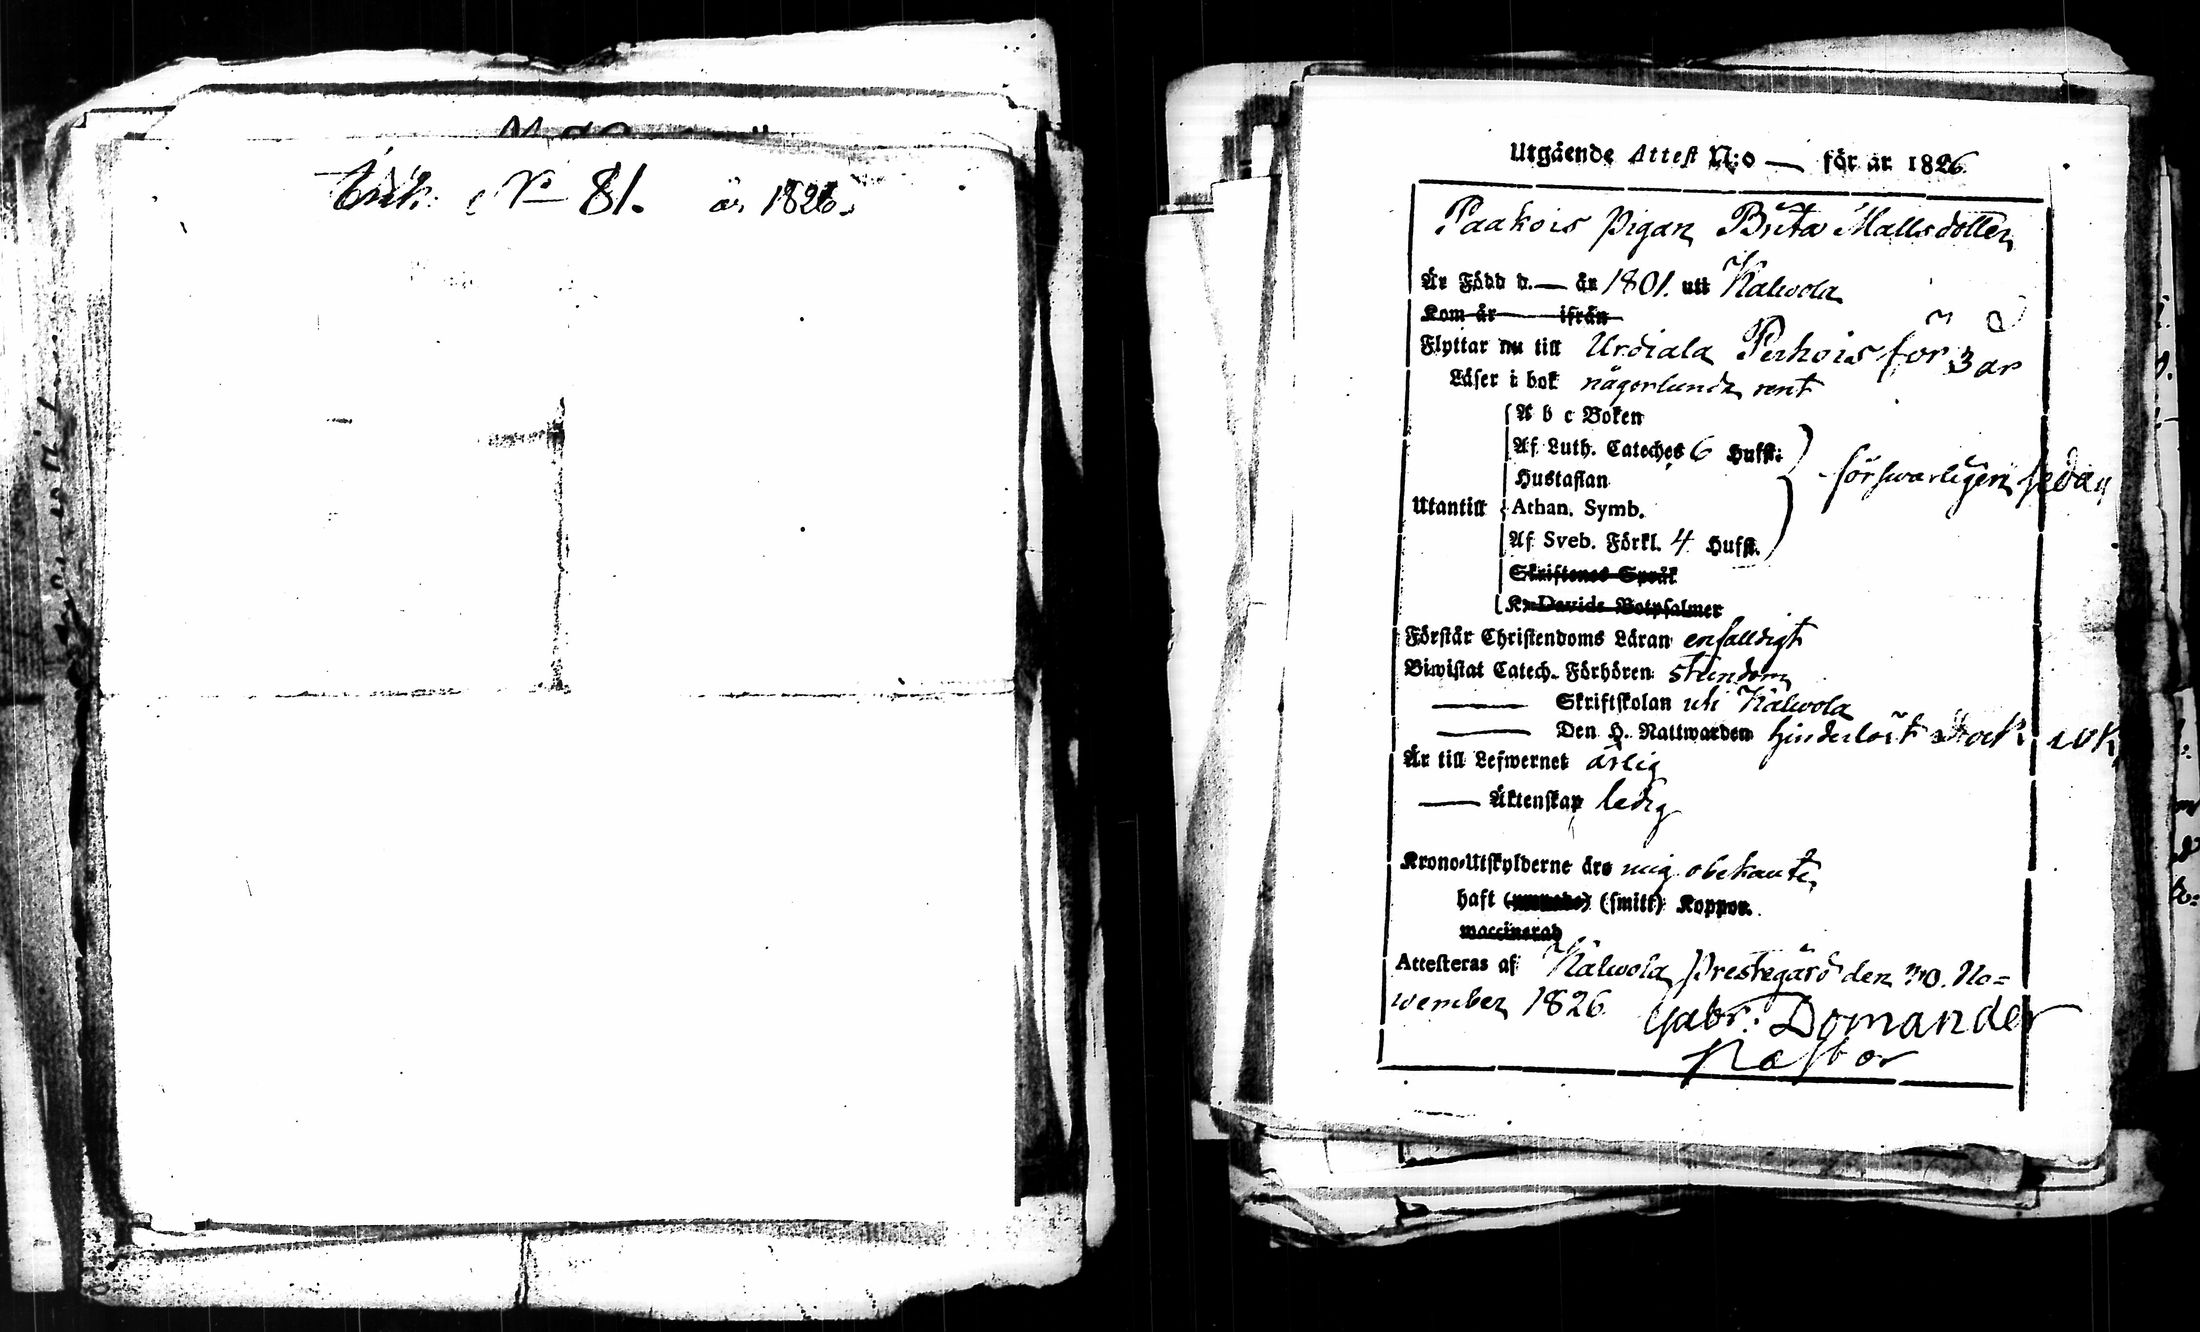 Ink. No 81. år 1826.
Utgående Attest N:o — för år 1826.
Paakois pigan Brita Mattsdotter
Är Född d. — år 1801. uti Kalwola
Kom år — ifrån
Flyttar nu till Urdiala Perkois för 3 år
Läser i bok någorlunda rent
A b c Boken
Af Luth. Cateches 6 Hufst:
Hustaflan
försvarligen sedan
Utantill Athan. Symb.
Af Sveb. Förkl. 4 Hufst.
Skriftenes Språk
K. Davids Botpsalmer
Förstår Christendoms Läran enfalldigt
Biwistat Catech. Förhören stundom
— Skriftskolan uti Kalwola
— Den H. Nattwarden hinderlöst
Är till Lefwernet ärlig
— Äktenskap ledig
Krono-Utskylderne äro mig obekante
haft (smitt) Koppor.
waccinerad
Attesteras af Kalwola Prestegård den 30. No=
wember 1826 Gabr: Domander
Pastor